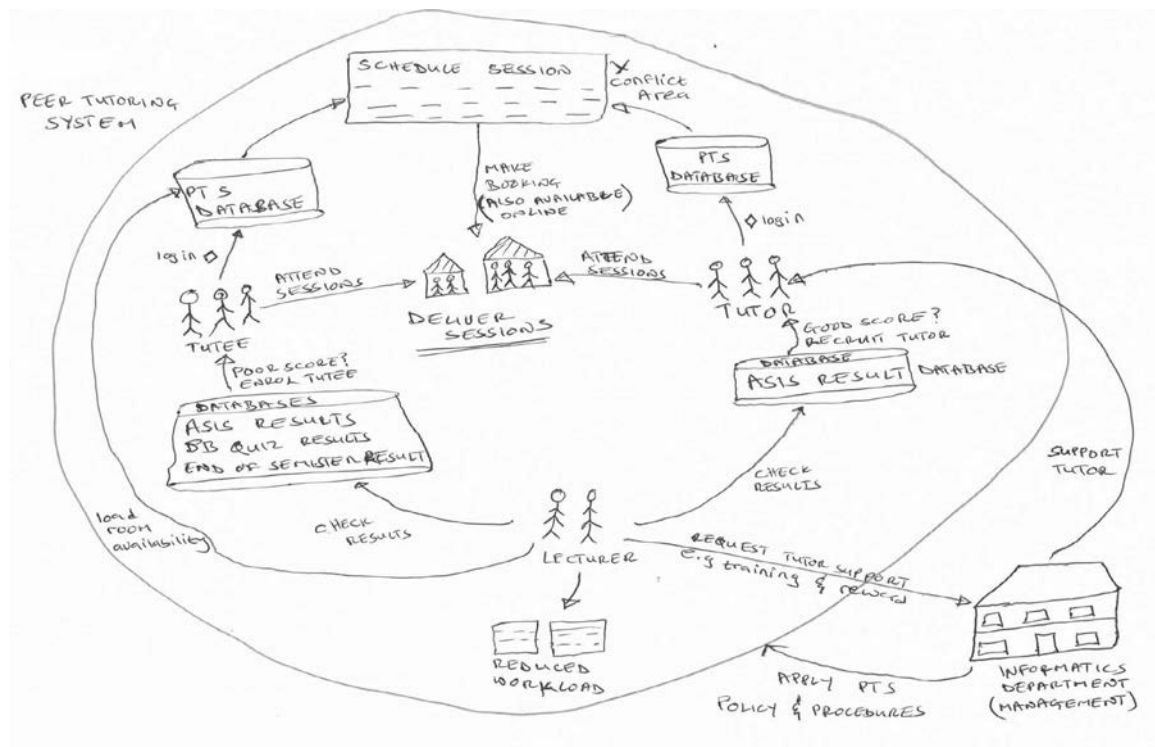 PEER TUTORING
SYSTEM
SCHEDULE SESSION
X
Conflict
Area
PTS
DATABASE
MAKE
BOOKING
(ALSO AVAILABLE)
ONLINE
PTS
DATABASE
login
login
ATTEND
SESSIONS
ATTEND
SESSIONS
TUTEE
DELIVER
SESSIONS
TUTOR
POOR SCORE?
ENROL TUTEE
GOOD SCORE?
RECRUIT TUTOR
DATABASES
ASIS RESULTS
BB QUIZ RESULTS
END OF SEMISTER RESULT
DATABASE
ASIS RESULT
DATABASE
load
room
availability
CHECK
RESULTS
LECTURER
CHECK
RESULTS
SUPPORT
TUTOR
REQUEST TUTOR SUPPORT
e.g training & reward
REDUCED
WORKLOAD
APPLY PTS
POLICY & PROCEDURES
INFORMATICS
DEPARTMENT
(MANAGEMENT)